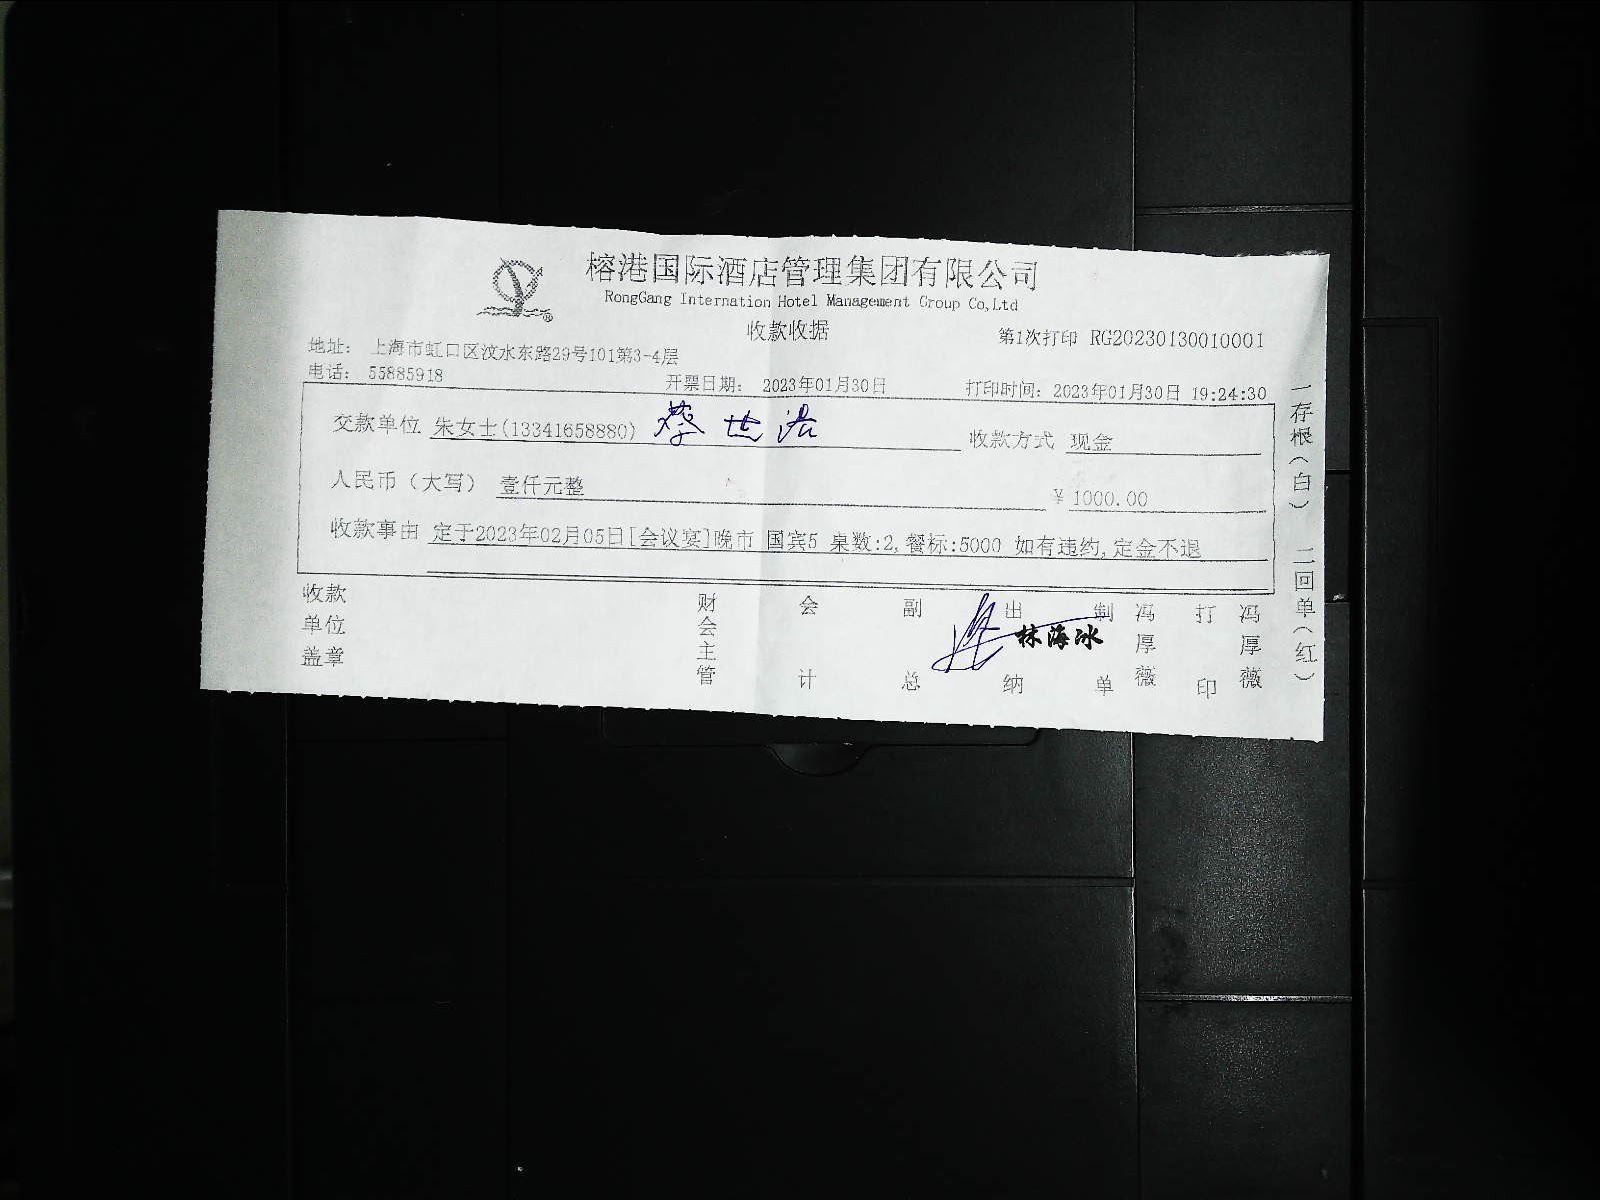 榕港国际酒店管理集团有限公司
RongGang Internation Hotel Management Group Co,Ltd
收款收据
第1次打印 RG20230130010001
地址： 上海市虹口区汶水东路29号101第3-4层
电话： 55885918
开票日期： 2023年01月30日
打印时间：2023年01月30日 19:24:30
交款单位 朱女士(13341658880) 蔡世浩
收款方式 现金
人民币（大写） 壹仟元整 ￥1000.00
收款事由 定于2023年02月05日[会议宴]晚市 国宾5 桌数:2,餐标:5000 如有违约,定金不退
收款单位盖章
财会主管
会计
副总
出纳
林海冰
制单
冯厚薇
打印
冯厚薇
一存根（白） 二回单（红）